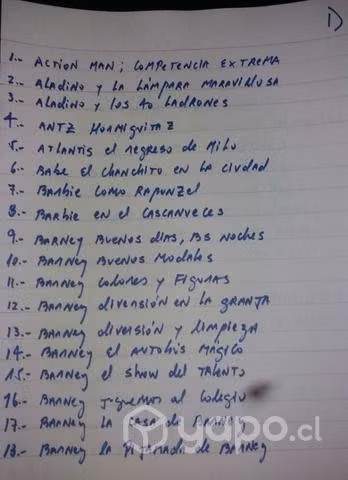 1)
1.- ACTION MAN; COMPETENCIA EXTREMA
2.- ALADINO Y LA LÁMPARA MARAVILLOSA
3.- ALADINO Y LOS 40 LADRONES
4.- ANTZ HORMIGUITAZ
5.- ATLANTIS el regreso de Milo
6.- BABE EL CHANCHITO EN LA CIUDAD
7.- BARBIE COMO RAPUNZEL
8.- BARBIE EN EL CASCANUECES
9.- BARNEY BUENOS DIAS, BS NOCHES
10.- BARNEY BUENOS MODALES
11.- BARNEY COLORES Y FIGURAS
12.- BARNEY DIVERSIÓN EN LA GRANJA
13.- BARNEY DIVERSIÓN Y LIMPIEZA
14.- BARNEY EL AUTOBÚS MÁGICO
15.- BARNEY EL SHOW DEL TALENTO
16.- BARNEY JUGUEMOS AL COLEGIO
17.- BARNEY LA CASA DE BARNEY
18.- BARNEY LA PIJAMADA DE BARNEY
yapo.cl